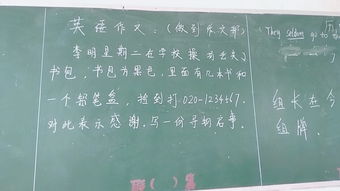 英语作文.(做到作文那)
李明星期二在学校操场丢失了
书包,书包为黑色,里面有几本书和
一个铅笔盒,捡到打.020-1234567.
对此表示感谢.写一份寻物启事.
They seldom go to
组长在今
组牌.